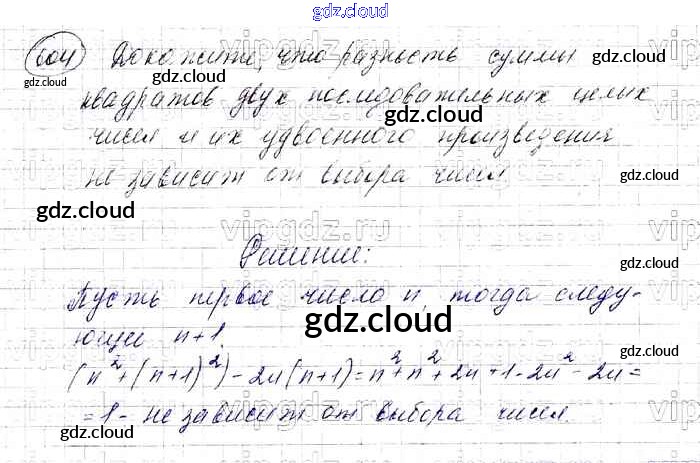 gdz.cloud
604 Докажите, что разность суммы
квадратов двух последовательных целых
чисел и их удвоенного произведения
не зависит от выбора чисел
Решение:
Пусть первое число n, тогда следу-
ющее n+1.
(n²+(n+1)²)-2n(n+1)=n²+n²+2n+1-2n²-2n=
=1- не зависит от выбора чисел.
gdz.cloud
gdz.cloud
gdz.cloud
gdz.cloud
gdz.cloud
gdz.cloud
gdz.cloud
gdz.cloud
gdz.cloud
gdz.cloud
gdz.cloud